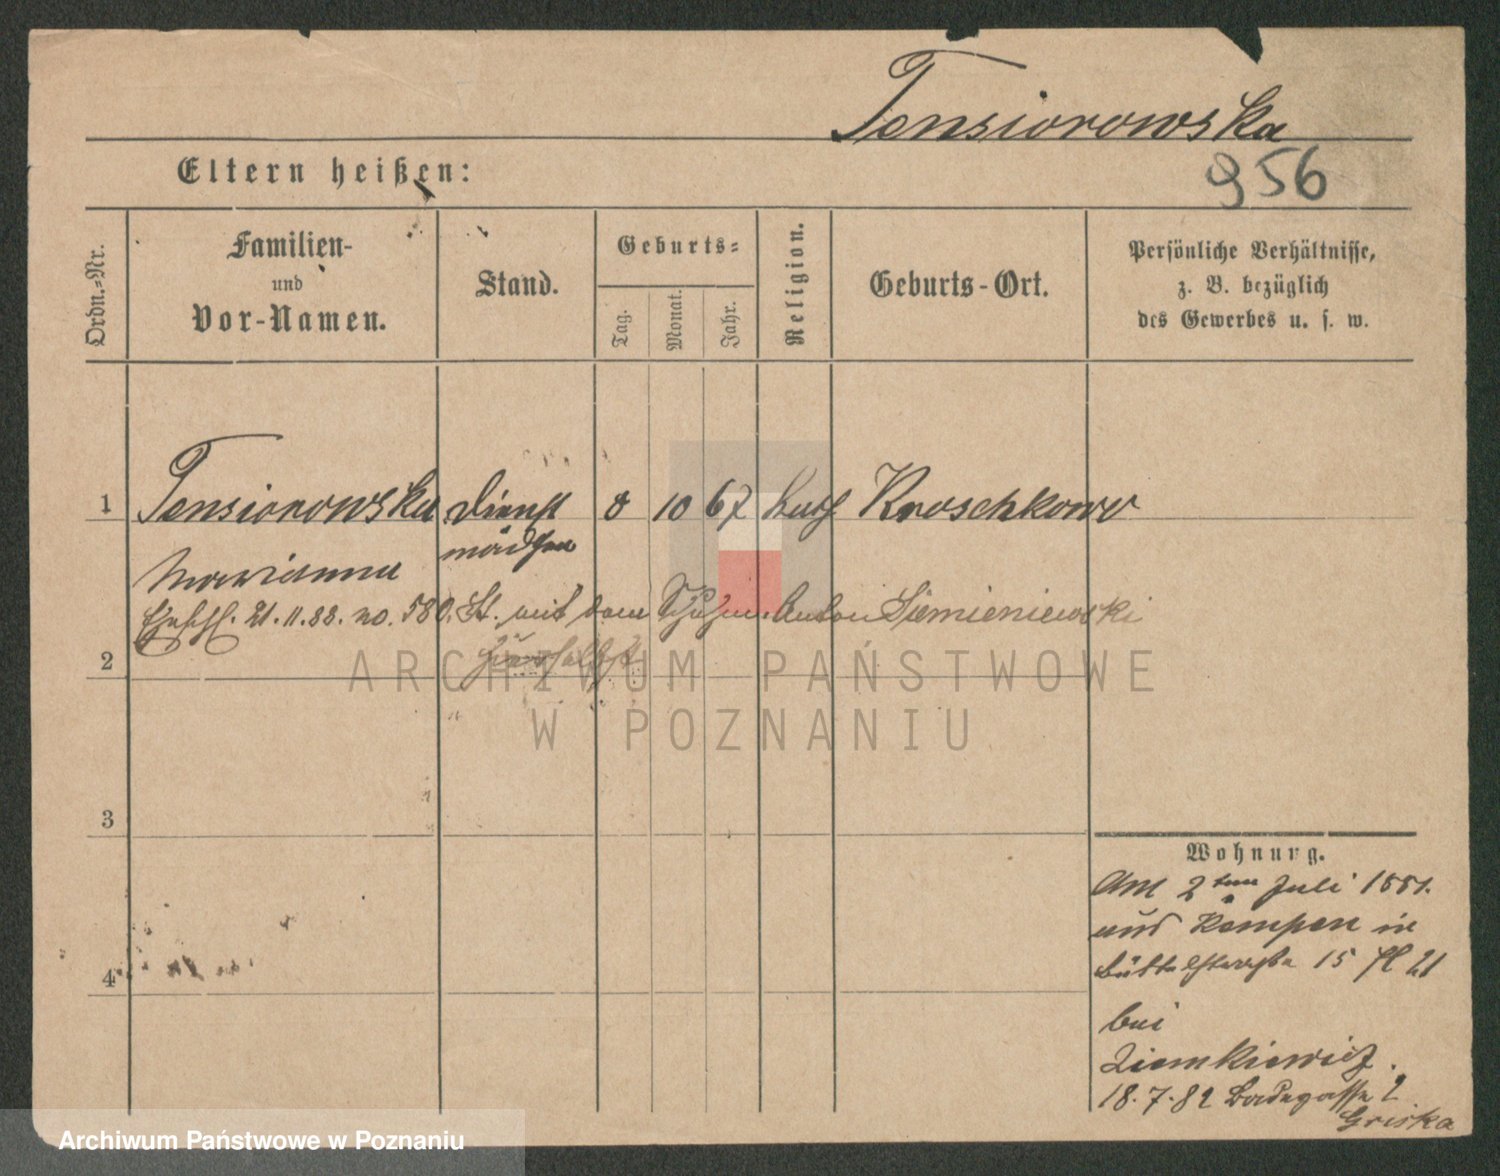 Tensiorowska
Eltern heißen:
956
Ordn.-Nr.
Familien-
und
Vor-Namen.
Stand.
Geburts-
Tag.
Monat.
Jahr.
Religion.
Geburts-Ort.
Persönliche Verhältnisse,
z. B. bezüglich
des Gewerbes u. s. w.
1 Tensiorowska Dienst 8 10 67 kath Kroschkowo
mädchen
Marianna
Ehschl. 21.11.88. no. 580. St. mit dem Anton Siemieniewski
hierselbst
2
ARCHIWUM PAŃSTWOWE
W POZNANIU
3
Wohnung.
Am 2ten Juli 1881.
aus Kempen in
Büttelstraße 15 21
4
bei
Ziemkiewicz.
18.7.82 Badegasse 2
Griska
Archiwum Państwowe w Poznaniu